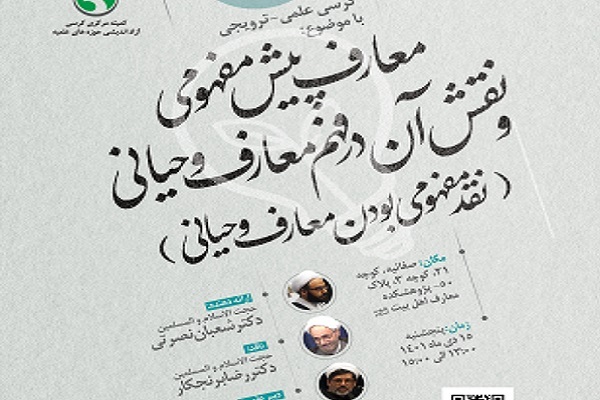 کمیته مرکزی کرسی
آزاداندیشی حوزه های علمیه
کرسی علمی-ترویجی
با موضوع:
معارف پیش مفهومی
و نقش آن در فهم معارف وحیانی
(نقد مفهومی بودن معارف وحیانی)
مکان: صفائیه، کوچه
۲۱، کوچه ۳، پلاک
۵۰- پژوهشکده
معارف اهل بیت
زمان: پنجشنبه
۱۵ دی ماه ۱۴۰۱
۱۳:۰۰ الی ۱۵:۰۰
ارائه دهنده:
حجت الاسلام و المسلمین
دکتر شعبان نصرتی
ناقد:
حجت الاسلام و المسلمین
دکتر رضا برنجکار